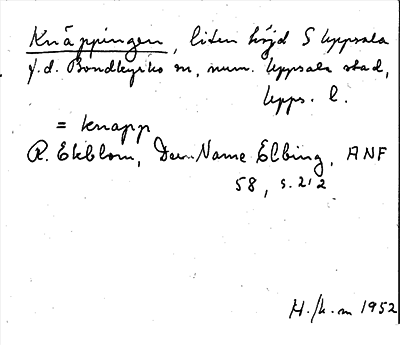 Knäppingen, liten höjd S Uppsala
f.d. Bondkyrko sn, num. Uppsala stad,
Upps. l.
= knapp
R. Ekblom, Der Name Elbing, ANF
58, s. 212
H./k.m 1952